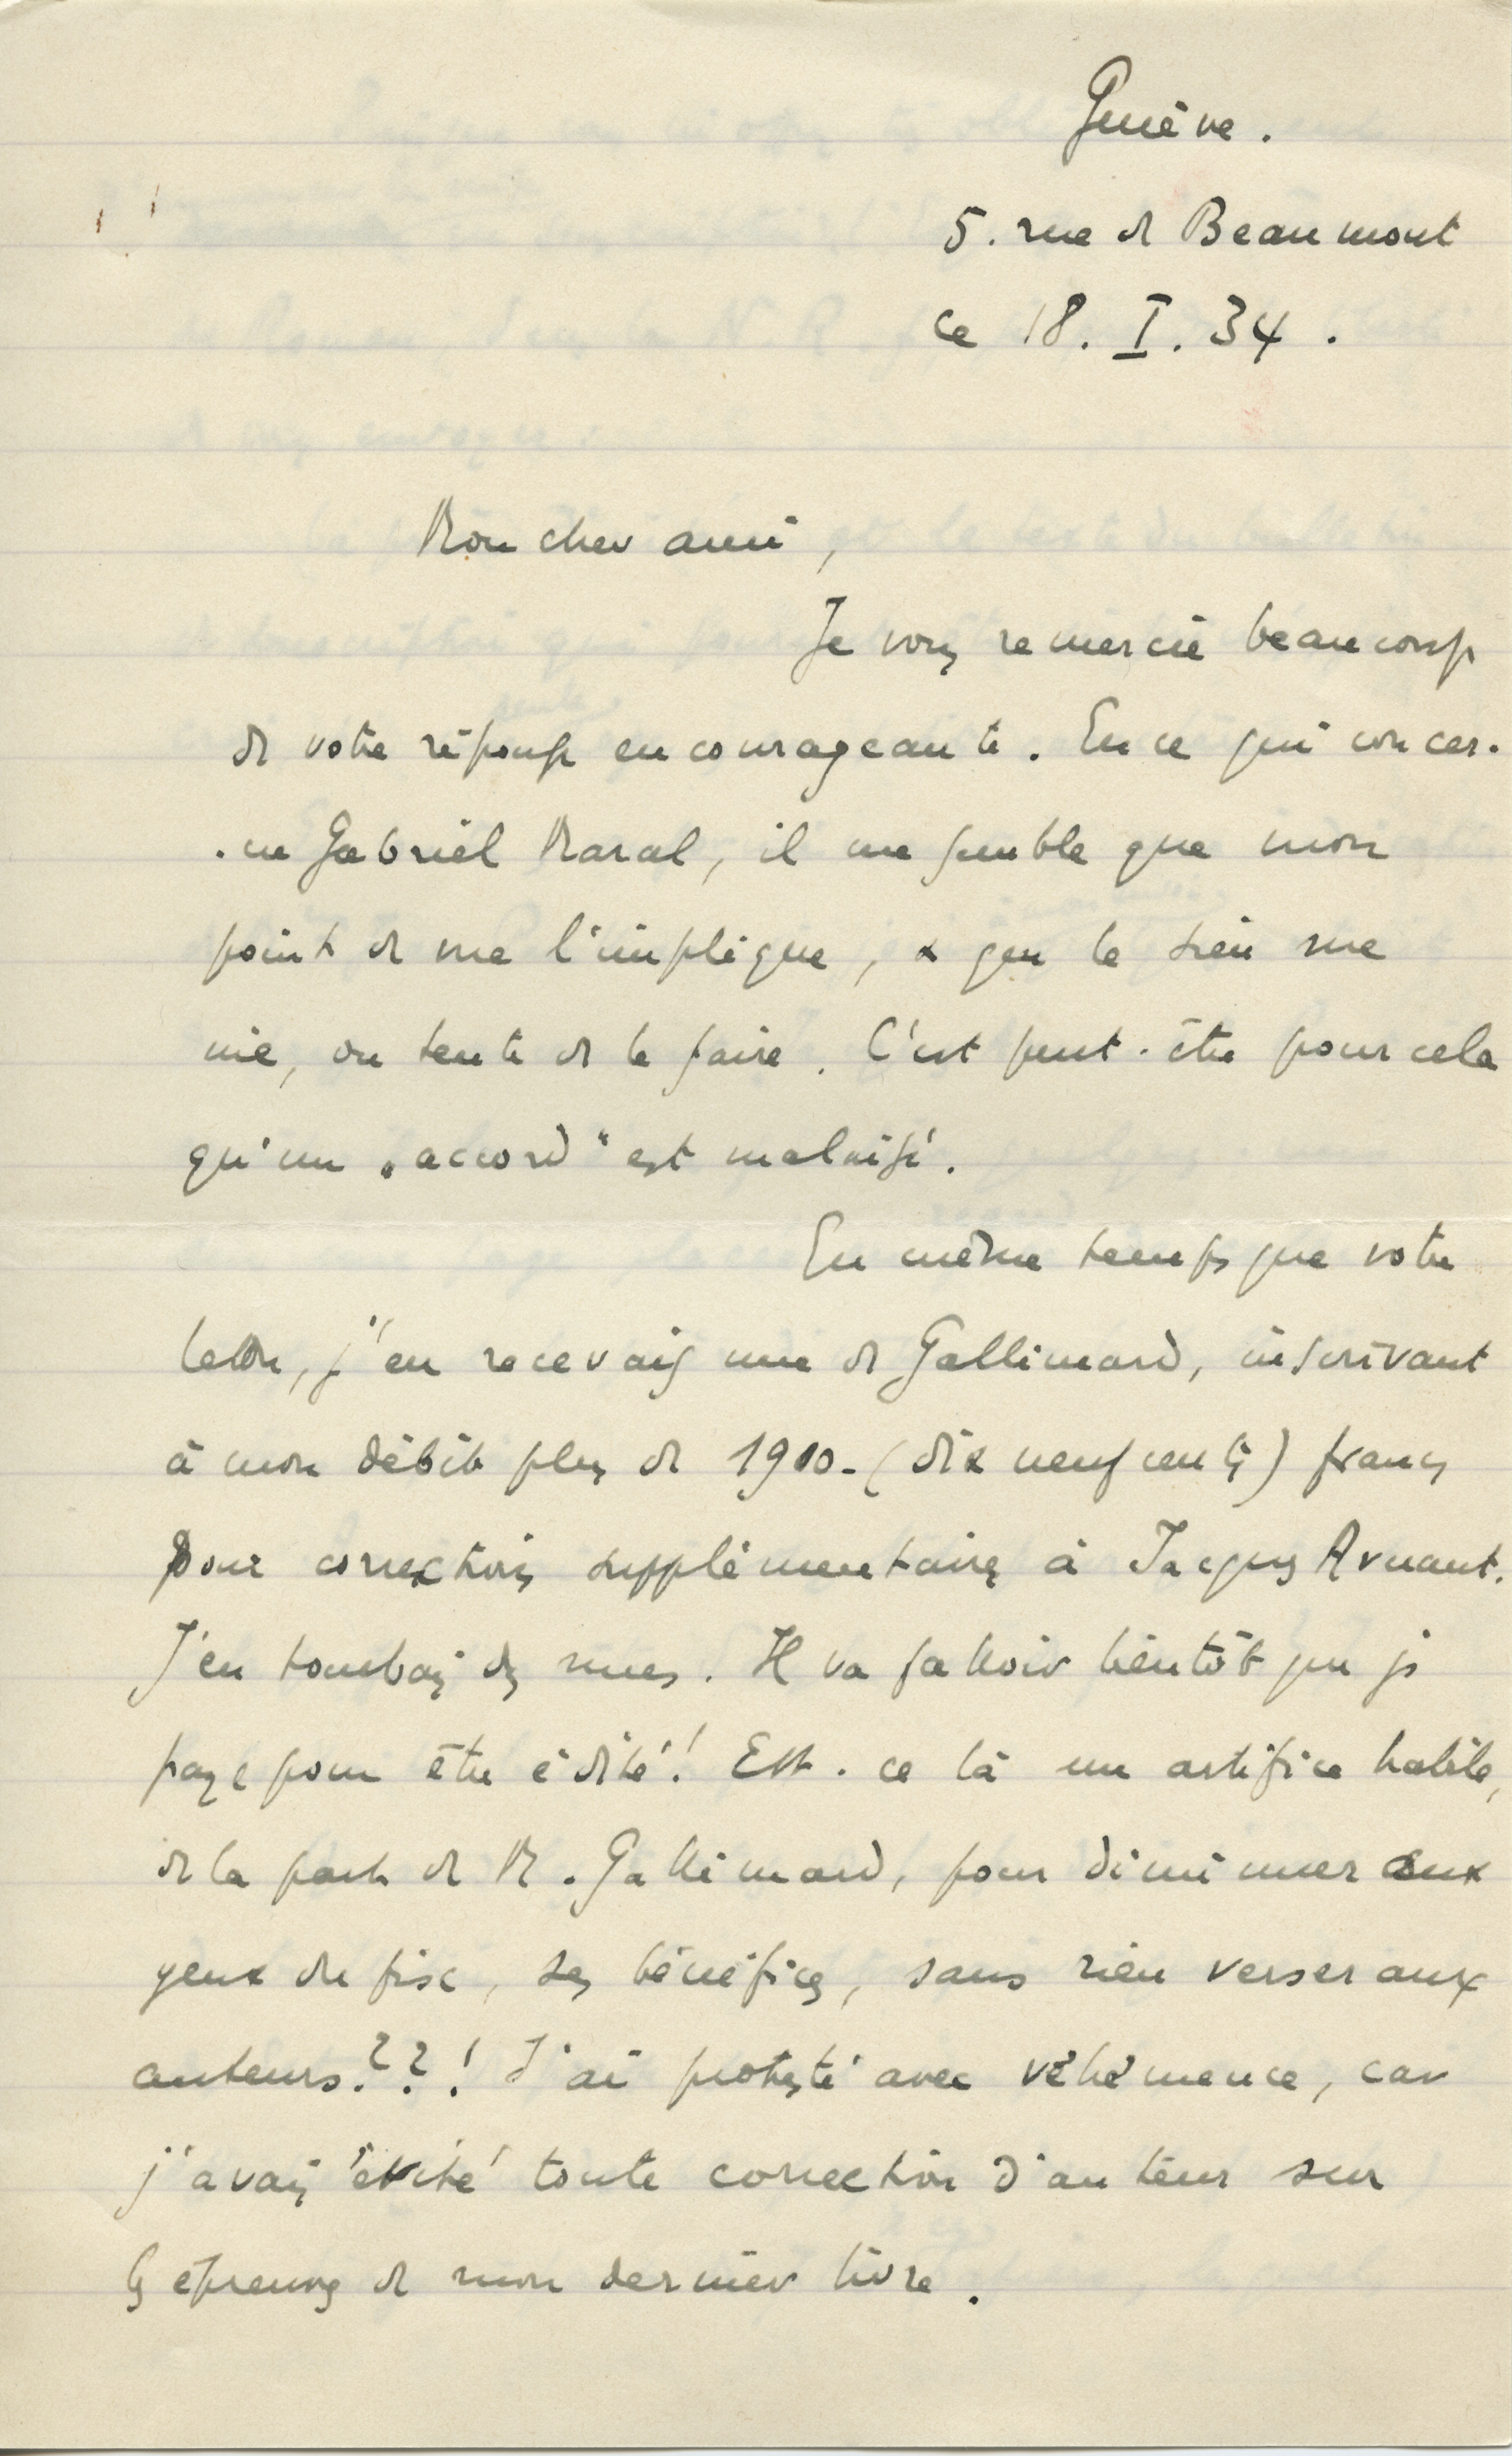 Genève.
5. rue de Beaumont
ce 18. I. 34.
Mon cher ami,
Je vous remercie beaucoup
de votre réponse encourageante. En ce qui concer-
-ne Gabriel Marcel, il me semble que mon
point de vue l'implique, & que le sien me
nie, ou tente de le faire. C'est peut-être pour cela
qu'un „accord" est malaisé.
En même temps que votre
lettre, j'en recevais une de Gallimard, inscrivant
à mon débit plus de 1900.- (dix neuf cents) francs
pour corrections supplémentaires à Jacques Arnaut.
J'en tombais des nues. Il va falloir bientôt que je
paye pour être édité! Est-ce là un artifice habile,
de la part de M. Gallimard, pour diminuer aux
yeux du fisc, ses bénéfices, sans rien verser aux
auteurs??! J'ai protesté avec véhémence, car
j'avais évité toute correction d'auteur sur
les épreuves de mon dernier livre.